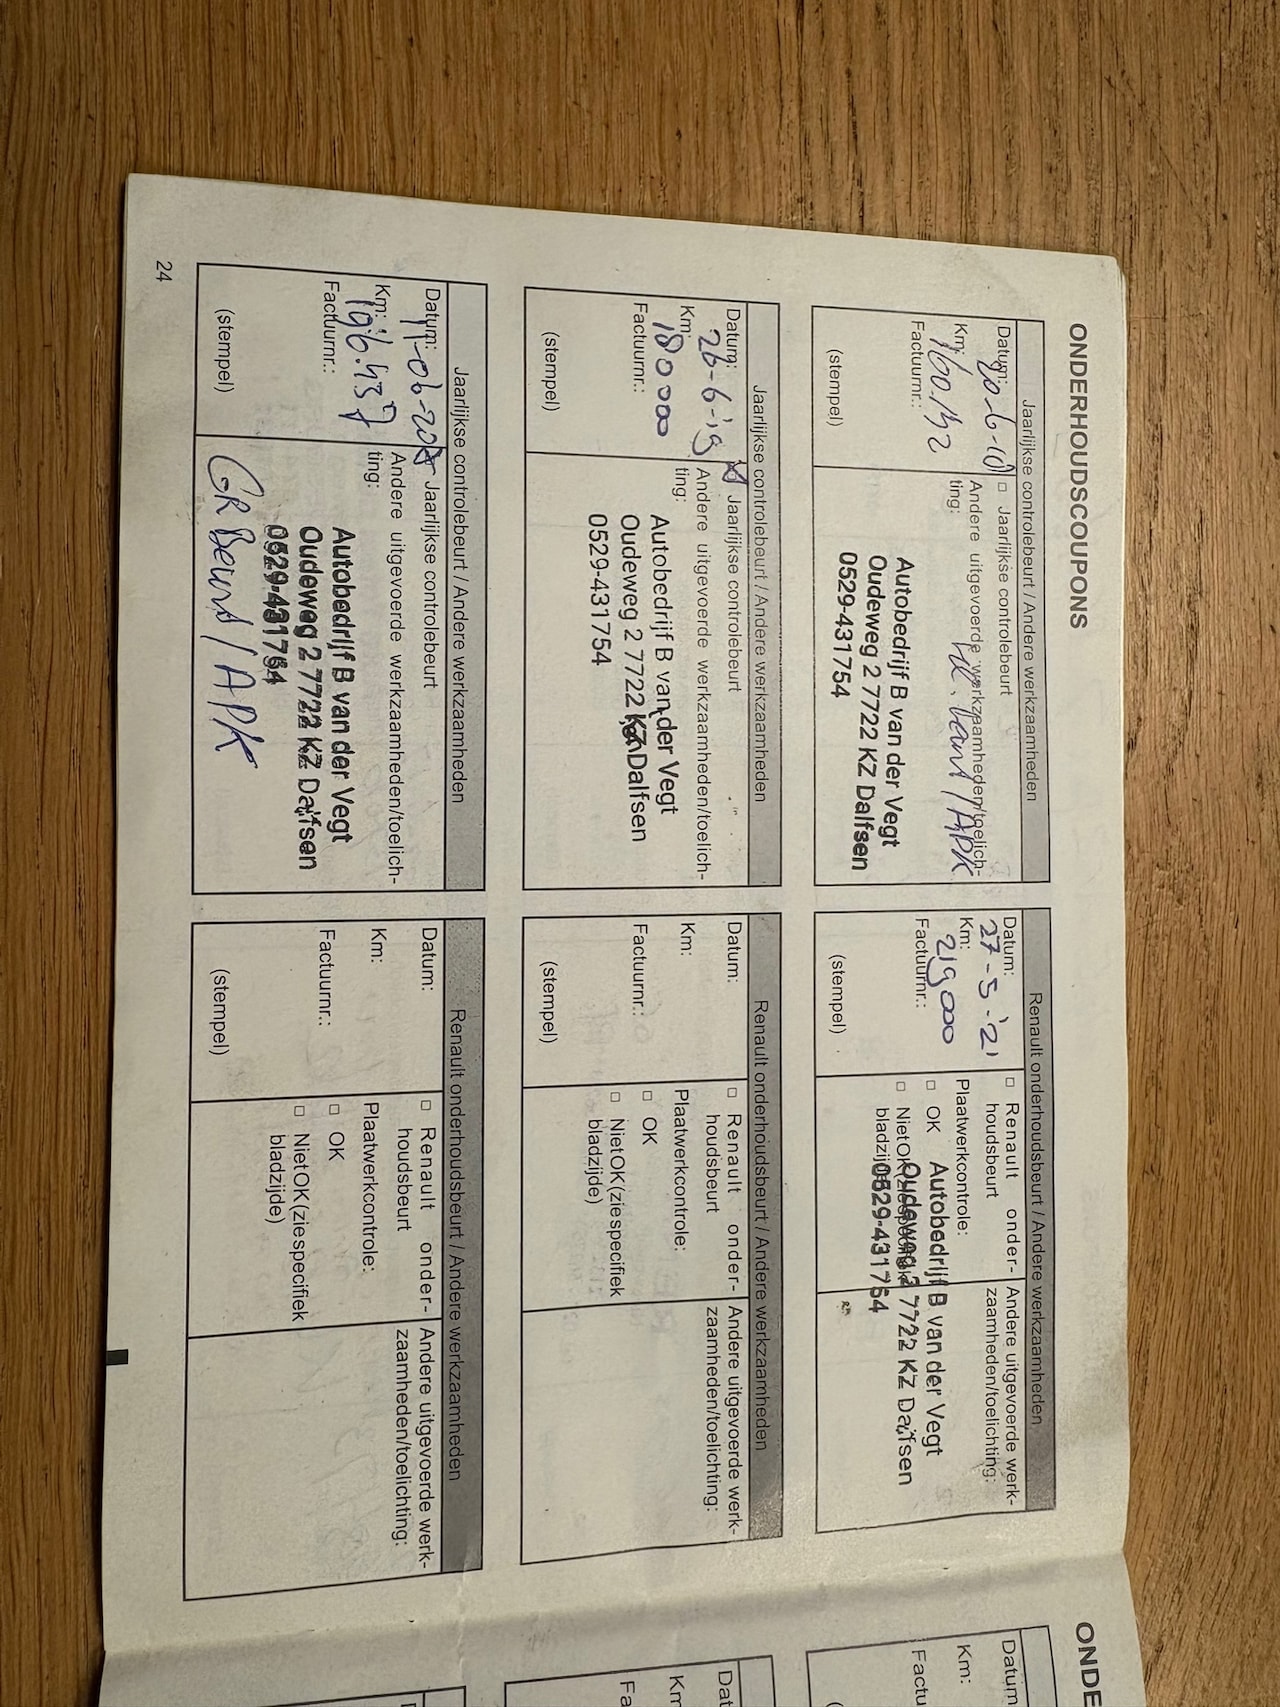 ONDERHOUDSCOUPONS
Jaarlijkse controlebeurt / Andere werkzaamheden
Datum:
Km: 160.132
Factuurnr.:
(stempel)
□ Jaarlijkse controlebeurt
Andere uitgevoerde werkzaamheden/toelich-
ting:
beurt / APK
Autobedrijf B van der Vegt
Oudeweg 2 7722 KZ Dalfsen
0529-431754
Renault onderhoudsbeurt / Andere werkzaamheden
Datum:
27-5-'21
Km:
219000
Factuurnr.:
(stempel)
□ Renault onder-
houdsbeurt
Plaatwerkcontrole:
□ OK
□ Niet OK (zie specifiek
bladzijde)
Andere uitgevoerde werk-
zaamheden/toelichting:
Autobedrijf B van der Vegt
Oudeweg 2 7722 KZ Dalfsen
0529-431754
Jaarlijkse controlebeurt / Andere werkzaamheden
Datum:
26-6-'19
Km:
180000
Factuurnr.:
(stempel)
Jaarlijkse controlebeurt
Andere uitgevoerde werkzaamheden/toelich-
ting:
Autobedrijf B van der Vegt
Oudeweg 2 7722 KZ Dalfsen
0529-431754
Renault onderhoudsbeurt / Andere werkzaamheden
Datum:
Km:
Factuurnr.:
(stempel)
□ Renault onder-
houdsbeurt
Plaatwerkcontrole:
□ OK
□ Niet OK (zie specifiek
bladzijde)
Andere uitgevoerde werk-
zaamheden/toelichting:
Jaarlijkse controlebeurt / Andere werkzaamheden
Datum:
Km:
196.437
Factuurnr.:
(stempel)
Jaarlijkse controlebeurt
Andere uitgevoerde werkzaamheden/toelich-
ting:
Autobedrijf B van der Vegt
Oudeweg 2 7722 KZ Dalfsen
0529-431754
GR Beurt / APK
Renault onderhoudsbeurt / Andere werkzaamheden
Datum:
Km:
Factuurnr.:
(stempel)
□ Renault onder-
houdsbeurt
Plaatwerkcontrole:
□ OK
□ Niet OK (zie specifiek
bladzijde)
Andere uitgevoerde werk-
zaamheden/toelichting:
24
ONDE
Datum
Km:
Factu
Dat
Km
Fa